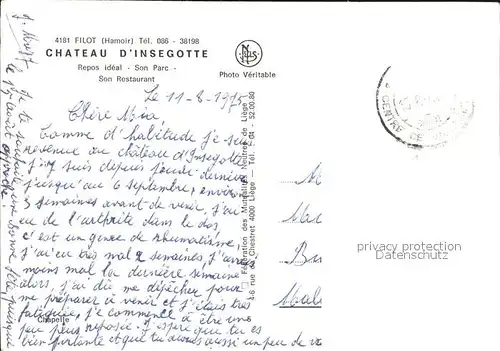 4181 FILOT (Hamoir) Tél. 086 - 38198
CHATEAU D'INSEGOTTE
Repos idéal - Son Parc -
Son Restaurant
Photo Véritable
Le 11-8-1975
Chère
Comme d'habitude je suis
revenue au château d'Insegotte
j'y suis depuis jeudi dernier
jusqu'au 6 septembre, environ
3 semaines avant de venir, j'ai
eu de l'arthrite dans le dos
c'est un genre de rhumatisme,
j'ai eu très mal 2 semaines, j'avais
moins mal la dernière semaine
alors, j'ai dû me dépêcher pour
me préparer à venir et j'étais très
fatiguée, je commence à être une
peu plus reposée. J'espère que tu es
bien portante et que tu auras aussi un peu de
Chapelle
je te souhaite une bonne fête, puisque
le 15 août approche
Fédération des Mutualités Neutres de Liège
4-6 rue de Chestret 4000 Liège - Tél. 04 - 52.00.80
M
Mad
CENTRE DE
privacy protection
Datenschutz